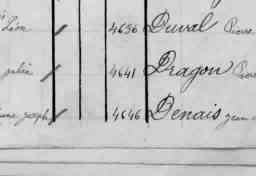 Léon / 4636 Duval Pierre
julien / 4641 Dragon Pier
joseph / 4646 Denais jean